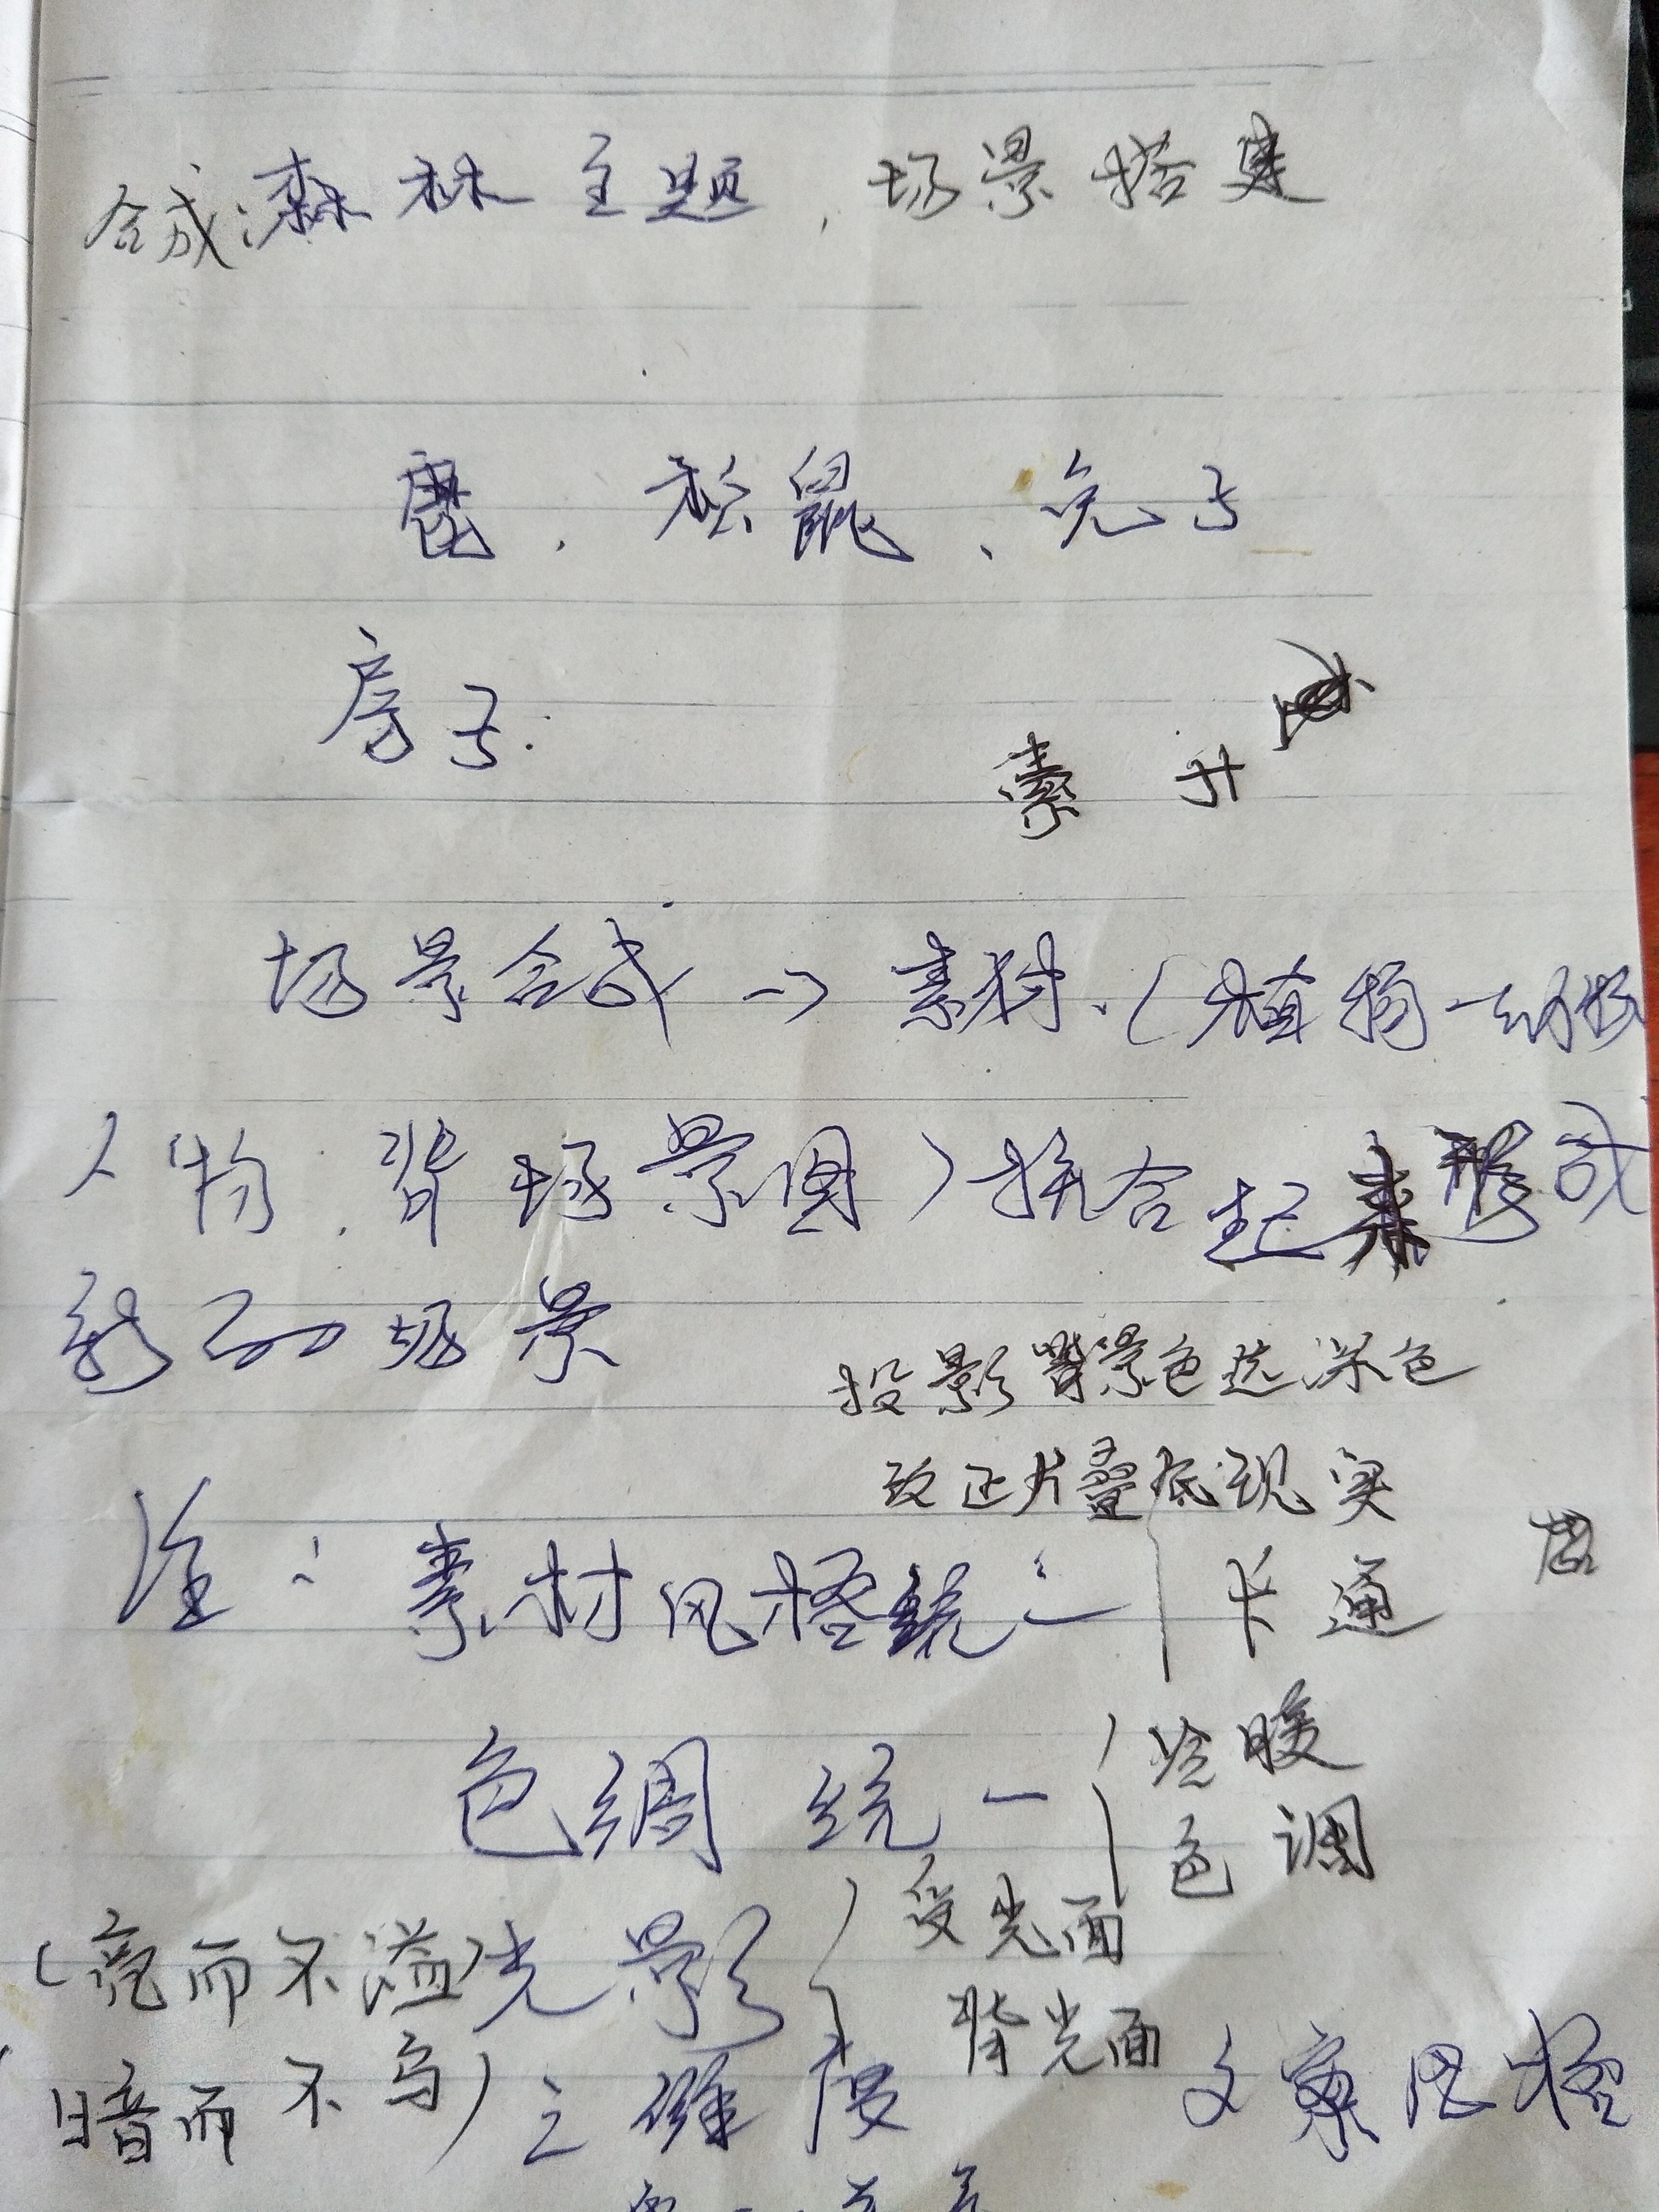 合成:森林主题,场景搭建
鹿、松鼠、兔子
房子.
素 升
场景合成→素材.(植物
人物、背场景图)拼合起来形成
新的场景
投影背景色选深色
改正片叠底现实
注:素材风格统一
卡通
色调 统一
冷暖
色调
受光面
(亮而不溢)光影
背光面
(暗而不乌)
立 维度
文案风格